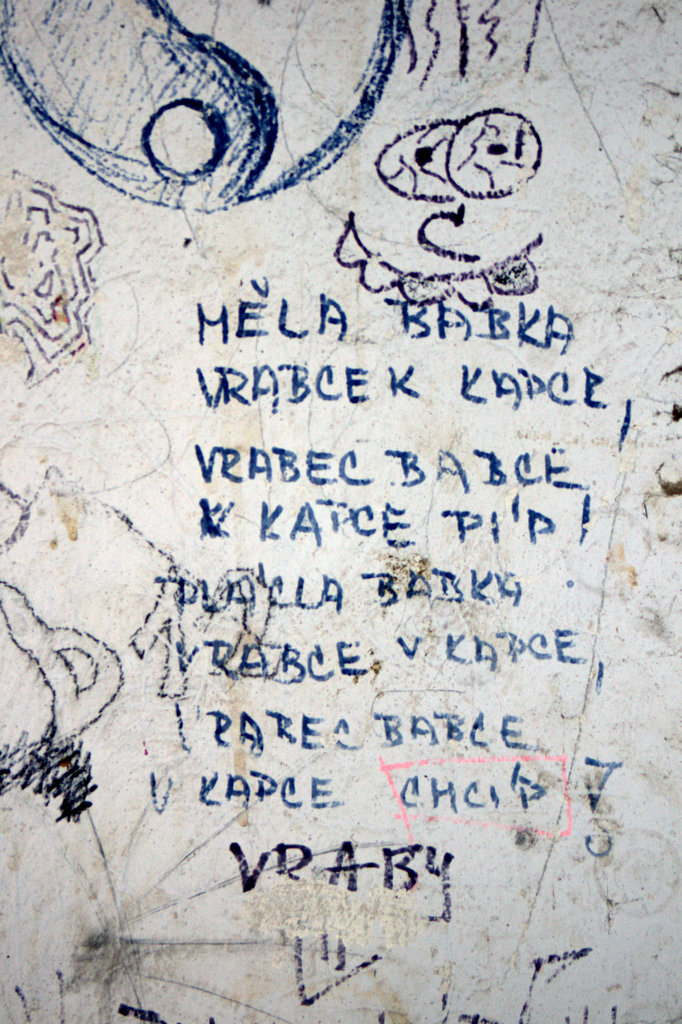 MĚLA BABKA
VRABCE K KAPCE,
VRABEC BABCE
K KAPCE PÍP!
PLÁCLA BABKA
VRABCE V KAPCE,
VRABEC BABCE
V KAPCE CHCÍP!
VRABY